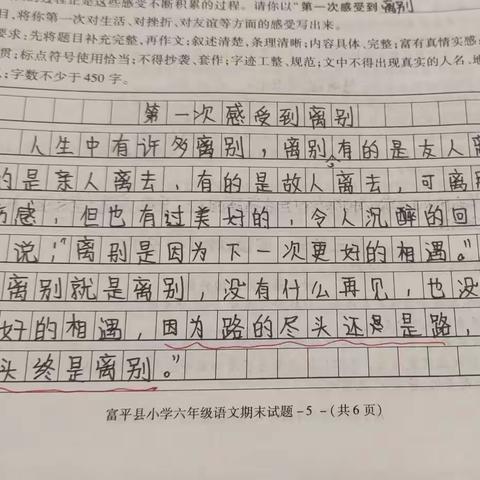 过程正是这些感受不断积累的过程。请你以"第一次感受到离别
目,将你第一次对生活、对挫折、对友谊等方面的感受写出来。
要求:先将题目补充完整,再作文;叙述清楚,条理清晰;内容具体、完整;富有真情实感;
贯;标点符号使用恰当;不得抄袭、套作;字迹工整、规范;文中不得出现真实的人名、地
;字数不少于 450 字。
第一次感受到离别
人生中有许多离别,离别,有的是友人离
的是亲人离去,有的是故人离去,可离别
伤感,但也有过美好的,令人沉醉的回
说:"离别是因为下一次更好的相遇。"
离别就是离别,没有什么再见,也没
好的相遇,因为路的尽头还是是路,
头终是离别。"
富平县小学六年级语文期末试题 -5- (共6页)